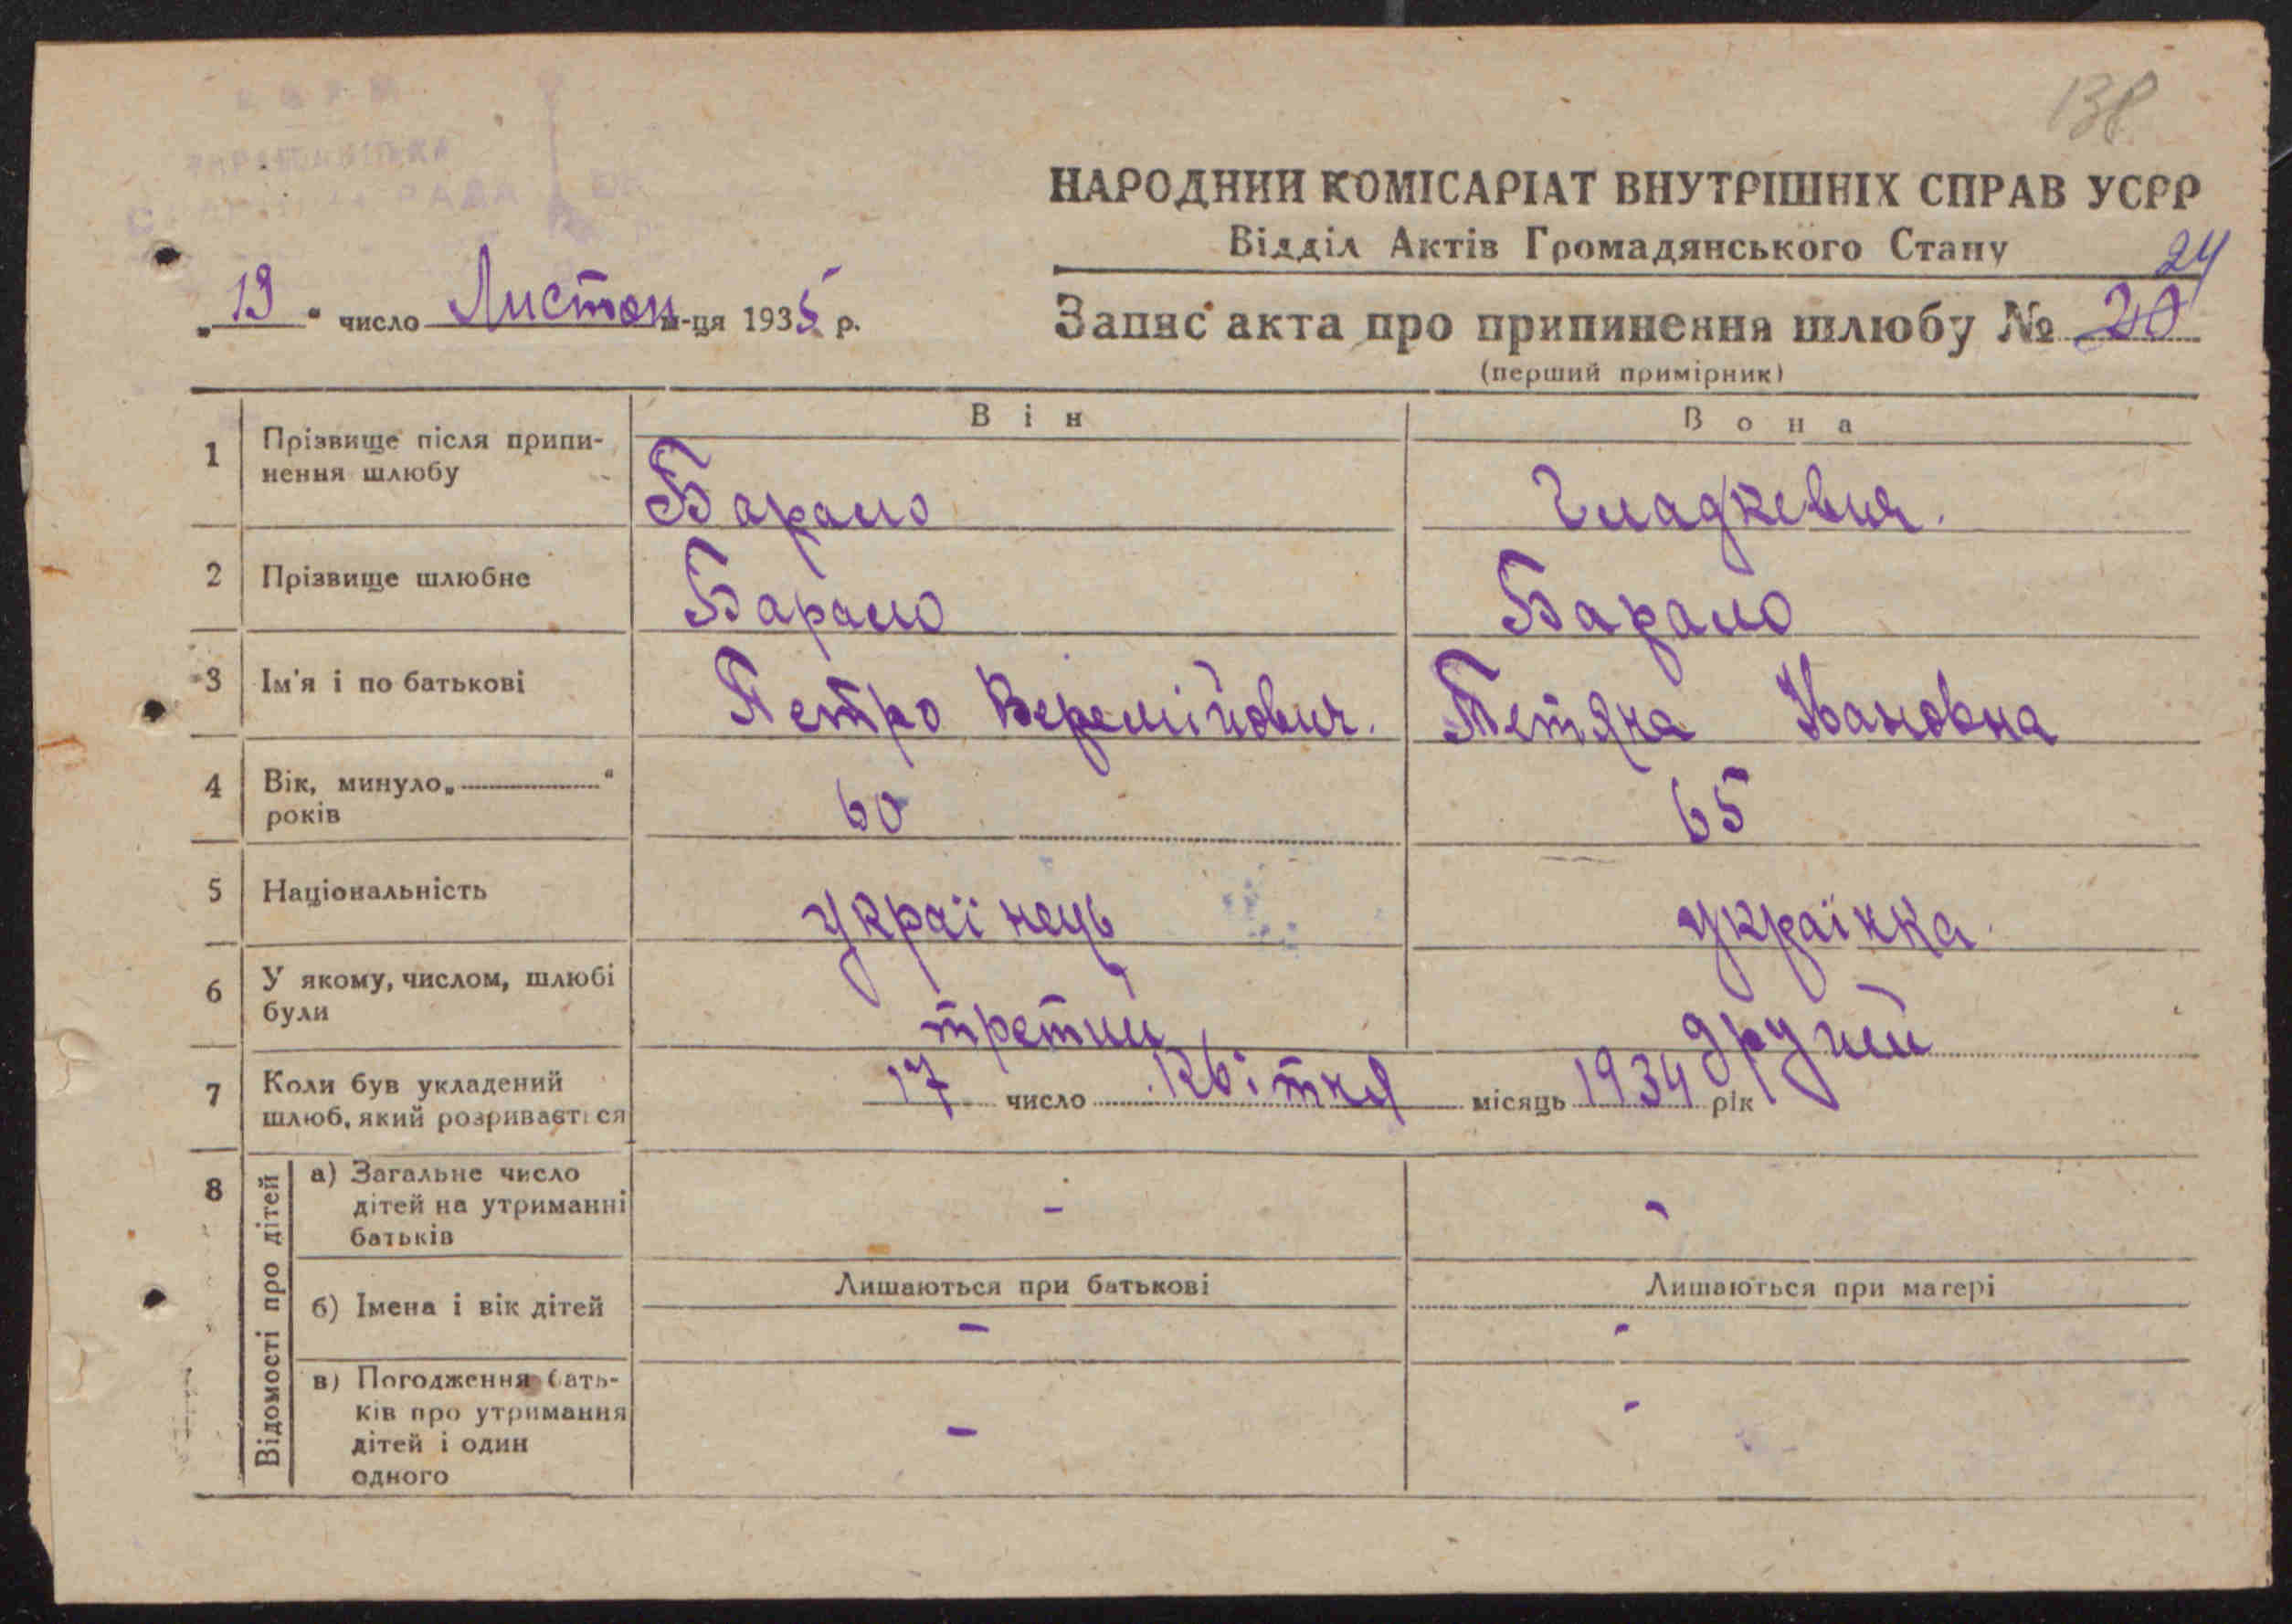 138
НАРОДНИЙ КОМІСАРІАТ ВНУТРІШНІХ СПРАВ УСРР
Відділ Актів Громадянського Стану
24
„13“ число Листоп м-ця 1935 р.
Запис акта про припинення шлюбу № 20
(перший примірник)
Він Вона
1 Прізвище після припи-
нення шлюбу
Барало Гладкевич.
2 Прізвище шлюбне Барало Барало
3 Ім'я і по батькові Петро Веремійович. Тетяна Івановна
4 Вік, минуло „ “
років
60 65
5 Національність українець українка.
6 У якому, числом, шлюбі
були
третий другий
7 Коли був укладений
шлюб, який розривається
17 число Квітня місяць 1934 рік
8 Відомості про дітей
а) Загальне число
дітей на утриманні
батьків
- -
б) Імена і вік дітей
Лишаються при батькові Лишаються при матері
- -
в) Погодження бать-
ків про утримання
дітей і один
одного
- -